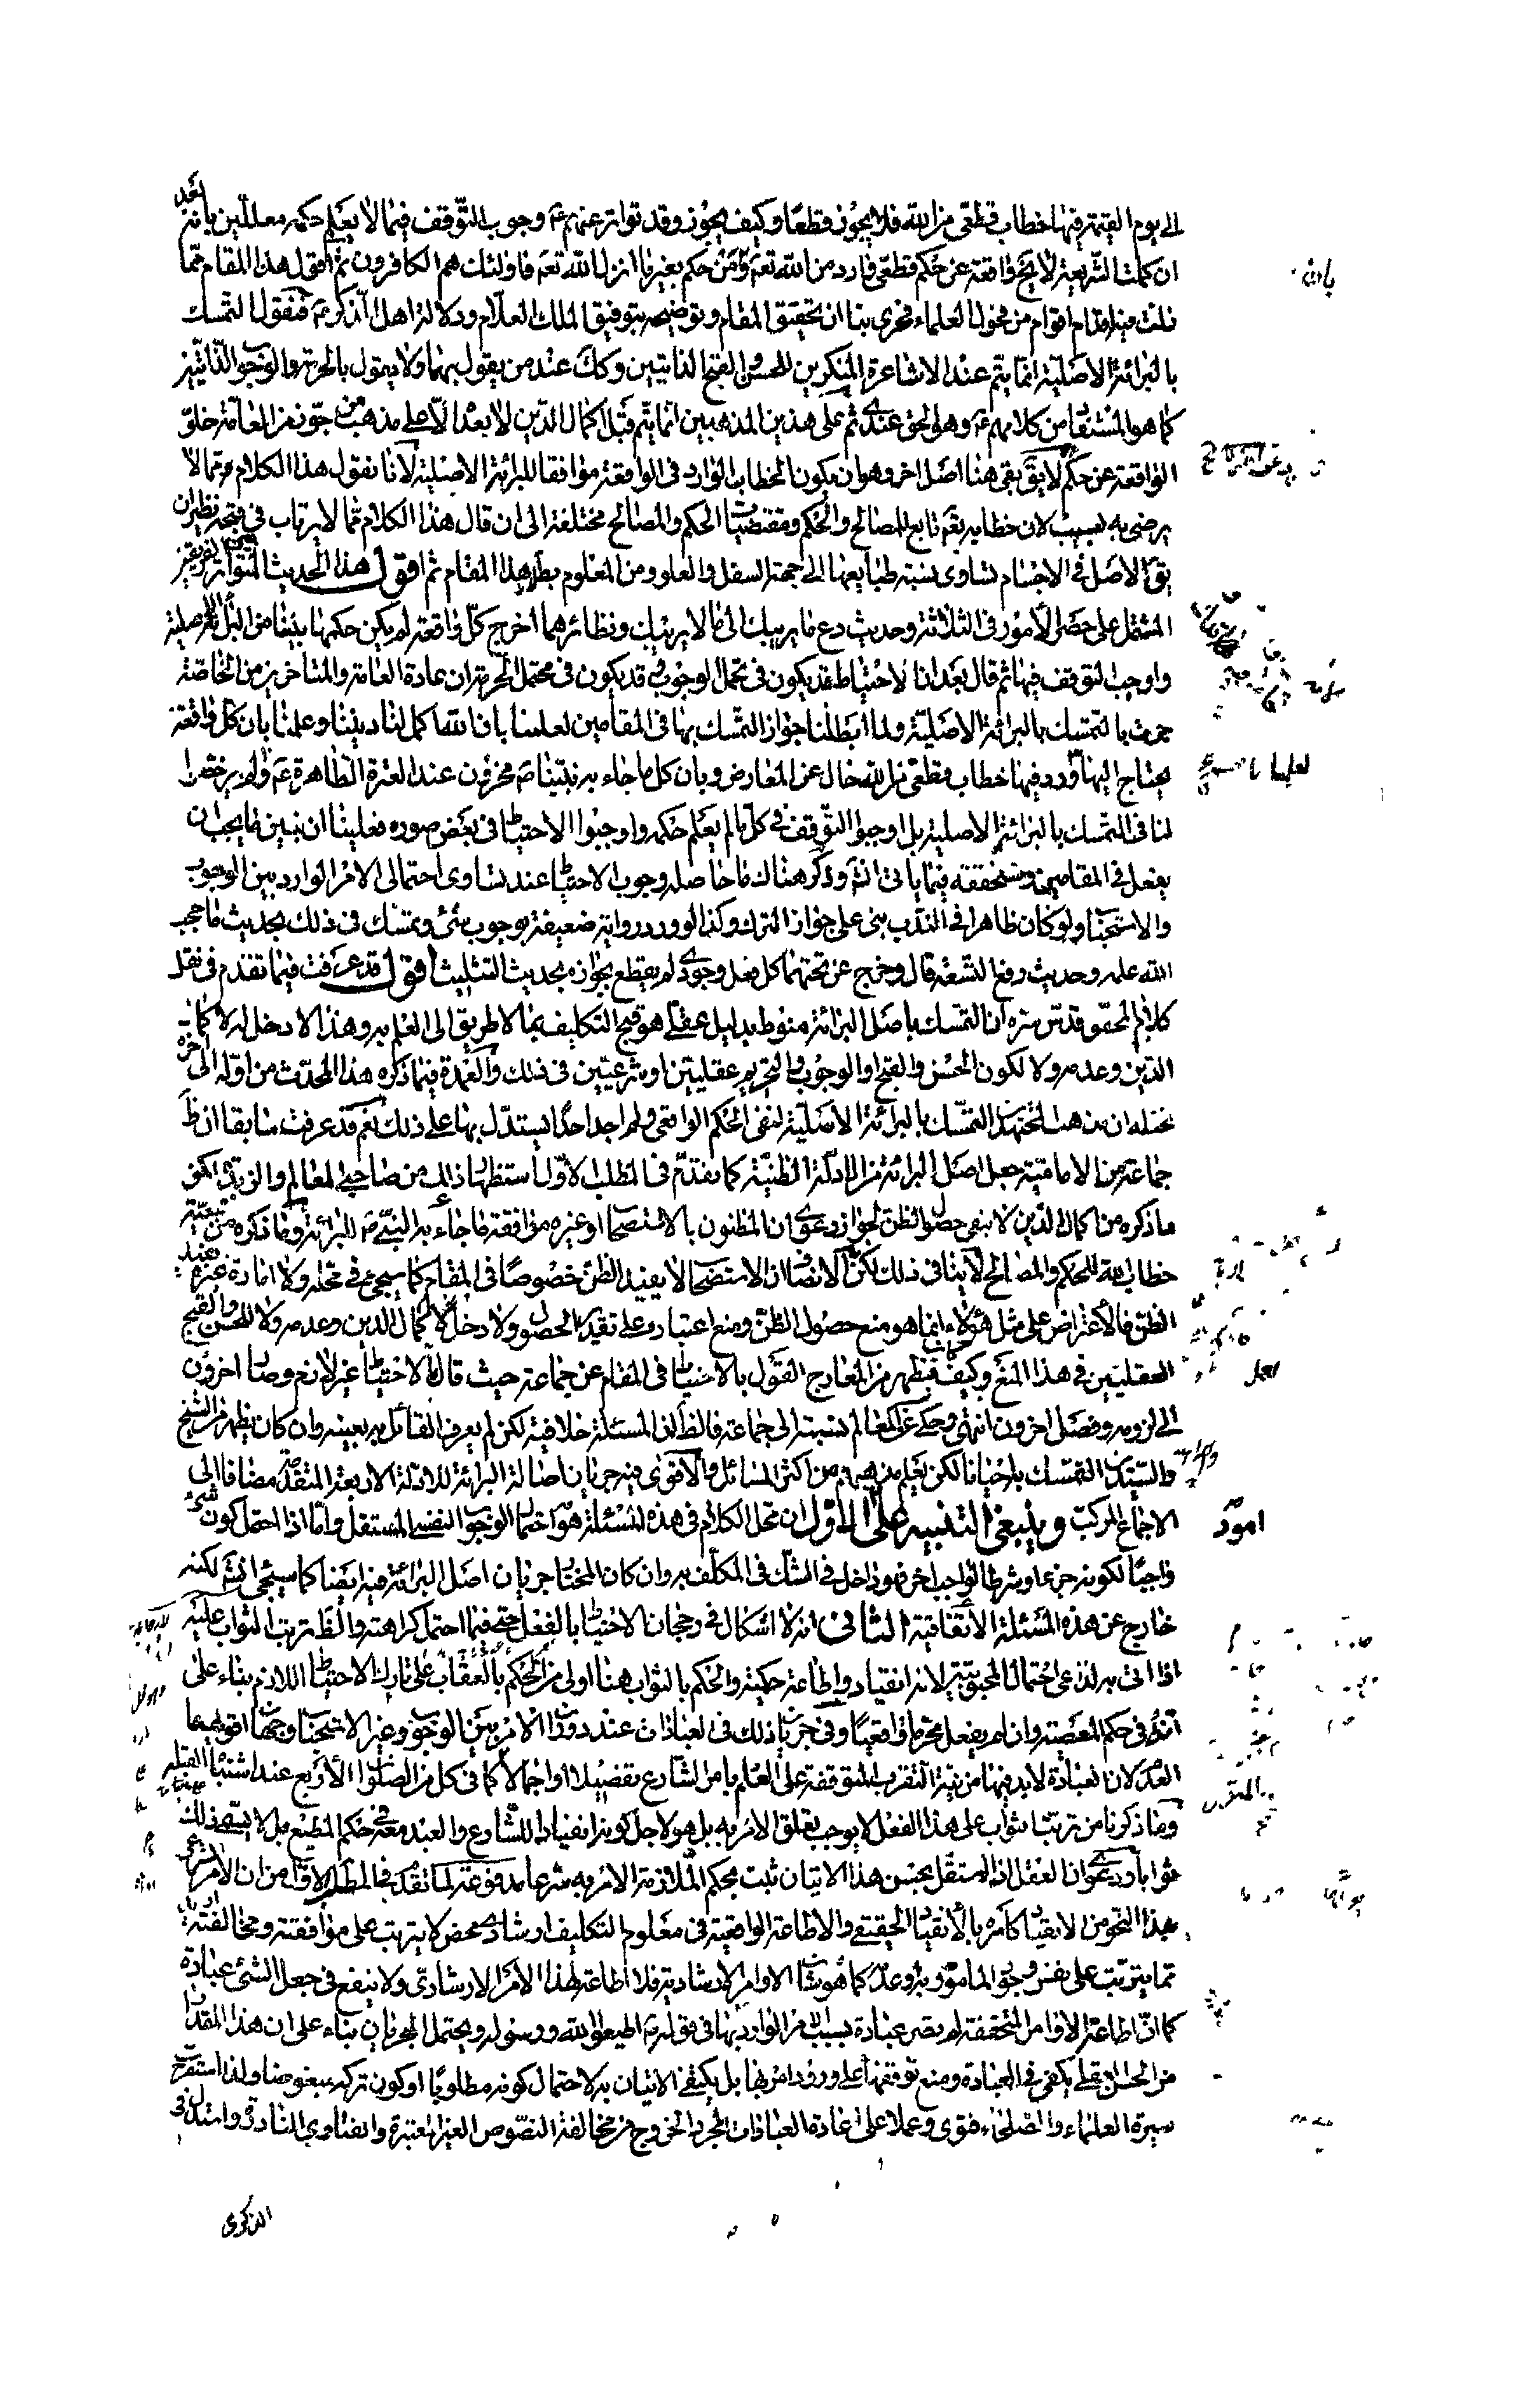 الى يوم القيمة فيها خطاب قطعى من الله فلا يجوز قطعا وكيف يجوز وقد تواتر عنهم ع وجوب التوقف فيما لا يعلم حكمه معللين بانه بعد
ان كملت الشريعة لا يخ واقعة عن حكم قطعى وارد من الله تعه ومن حكم بغير ما انزل الله تعه فاولئك هم الكافرون ثم اقول هذا المقام مما
زلت فيه اقدام اقوام من فحول العلماء فحرى بنا ان نحقق المقام ونوضحه بتوفيق الملك العلام ودلالة اهل الذكر ع فنقول التمسك
بالبرائة الاصلية انما يتم عند الاشاعرة المنكرين للحسن والقبح الذاتيين وكك عند من يقول بهما ولا يقول بالحرمة والوجوب الذاتيين
كما هو المستفا من كلامهم ع وهو الحق عندى ثم على هذين المذهبين انما يتم قبل اكمال الدين لا بعد الا على مذهب من جوز من العامة خلو
الواقعة عن حكم لا يق بقى هنا اصل اخر وهو ان يكون الخطاب الوارد فى الواقعة موافقا للبرائة الاصلية لانا نقول هذا الكلام مما لا
يرضى به لبيب لان خطابه تعه تابع للمصالح والحكم ومقتضيات الحكم والمصالح مختلفة الى ان قال هذا الكلام مما لا يرتاب فى قبحه نظير ان
يق الاصل فى الاجسام تساوى نسبة طبايعها الى جهة السفل والعلو ومن المعلوم بطلان هذا المقام ثم اقول هذا الحديث المتواتر بين الفريقين
المشتمل على حصر الامور فى الثلاثة وحديث دع ما يريبك الى ما لا يريبك ونظائرهما اخرج كل واقعة لم يكن حكمها بينا من البرائة الاصلية
واوجب التوقف فيها ثم قال بعد ان الاحتياط قد يكون فى محتمل الوجوب وقد يكون فى محتمل الحرمة ان عادة العامة والمتاخرين من الخاصة
جرت بالتمسك بالبرائة الاصلية ولما ابطلنا جواز التمسك بها فى المقامين لعلمنا بان الله اكمل لنا ديننا وعلمنا بان كل واقعة
يحتاج اليها ورد فيها خطاب قطعى من الله خال عن المعارض وبان كل ما جاء به نبينا ص مخزون عند العترة الطاهرة ع ولم يرخصوا
لنا فى التمسك بالبرائة الاصلية بل اوجبوا التوقف فى كل ما لم يعلم حكمه واوجبوا الاحتيا فى بعض صوره فعلينا ان نبين ما يجب ان
يفعل فى المقامين وسنحققه فيما ياتى انش وذكر هناك ما حاصله وجوب الاحتيا عند تساوى احتمالى الامر الوارد بين الوجوب
والاستحبا ولو كان ظاهرا فى الندب بنى على جواز الترك وكذا لو ورد رواية ضعيفة بوجوب شئ وتمسك فى ذلك بحديث ما حجب
الله علمه وحديث رفع التسعة قال وخرج عن تحتهما كل فعل وجودى لم يقطع بجوازه بحديث التثليث اقول قد عرفت فيما تقدم فى نقل
كلام المحقق قدس سره ان التمسك باصل البرائة منوط بدليل عقلى هو قبح التكليف بما لا طريق الى العلم به وهذا لا دخل له لاكمال
الدين وعدمه ولا لكون الحسن والقبح او الوجوب والتحريم عقليين او شرعيين فى ذلك والعمدة فيما ذكره هذا المحدث من اوله الى اخره
تخيله ان مذهب المجتهدين التمسك بالبرائة الاصلية لنفى الحكم الواقعى ولم اجد احدا يستدل بها على ذلك نعم قد عرفت سابقا ان ظ
جماعة من الامامية جعل اصل البرائة من الادلة الظنية كما تقدم فى المطلب الاول استظهار ذلك من صاحبى المعالم والزبدة لكن
ما ذكره من كمال الدين لا ينفى حصول الظن لجواز دعوى ان المظنون بالاستصحا او غيره موافقة ما جاء به النبى ص للبرائة وما ذكره من تبعية
خطاب الله للحكم والمصالح لا ينافى ذلك لكن الانصاف ان الاستصحا لا يفيد الظن خصوصا فى المقام كما سيجئ فى محله ولا امارة غيره يفيد
الظن فالاعتراض على مثل هؤلاء انما هو منع حصول الظن ومنع اعتباره على تقدير الحصول ولا دخل لاكمال الدين وعدمه ولا للحسن والقبح
العقليين فى هذا المنع وكيف كان فيظهر من المعارج القول بالاحتياط فى المقام عن جماعة حيث قال الاحتيا غير لازم وصار اخرون
الى لزومه وفصل اخرون انتهى وحكى عن المعالم نسبته الى جماعة فالظ ان المسئلة خلافية لكن لم يعرف القائل به بعينه وان كان يظهر من الشيخ
والسيدين التمسك به احيانا لكن يعلم مذهبهم من اكثر المسائل والاقوى فيه جريان اصالة البرائة للادلة الاربعة المتقدمة مضافا الى
الاجماع المركب وينبغى التنبيه على امور الاول ان محل الكلام فى هذه المسئلة هو احتمال الوجوب النفسى المستقل واما اذا احتمل كون شئ
واجبا لكونه جزءا او شرطا لواجب اخر فهو داخل فى الشك فى المكلف به وان كان المختار جريان اصل البرائة فيه ايضا كما سيجئ انش لكنه
خارج عن هذه المسئلة الاتفاقية الثانى انه لا اشكال فى رجحان الاحتيا بالفعل حتى فيما احتمل كراهته والظ ترتب الثواب عليه
اذا اتى به لداعى احتمال المحبوبية لانه انقياد واطاعة حكمية والحكم بالثواب هنا اولى من الحكم بالعقاب على تارك الاحتيا اللازم بناء على
انه فى حكم المعصية وان لم يفعل محرما واقعيا وفى جريان ذلك فى العبادات عند دوران الامر بين الوجوب وغير الاستحبا وجهان اقويهما
العدم لان العبادة لا بد فيها من نية التقرب المتوقفة على العلم بامر الشارع تفصيلا او اجمالا كما فى كل من الصلوات الاربع عند اشتباه القبلة
وما ذكرنا من ترتب الثواب على هذا الفعل لا يوجب تعلق الامر به بل هو لاجل كونه انقيادا للشارع والعبد معه فى حكم المطيع بل لا يسمى ذلك
ثوابا ودعوى ان العقل اذا استقل بحسن هذا الاتيان ثبت بحكم الملازمة الامر به شرعا مدفوعة لما تقدم فى المطلب الاول من ان الامر الشرعى
بهذا النحو من الانقياد كامره بالانقياد الحقيقى والاطاعة الواقعية فى معلوم التكليف ارشادى محض لا يترتب على موافقته ومخالفته ازيد
مما يترتب على نفس وجود المامور به وعدمه كما هو شان الاوامر الارشادية فلا اطاعة لهذا الامر الارشادى ولا ينفع فى جعل الشئ عبادة
كما ان اطاعة الاوامر المتحققة لم يصر عبادة بسبب الامر الوارد بها فى قوله تع اطيعوا الله ورسوله ويحتمل الجريان بناء على ان هذا المقدار
من الحسن العقلى يكفى فى العبادة ومنع توقفها على ورود امر بها بل يكفى الاتيان به لاحتمال كونه مطلوبا او كون تركه مبغوضا ولذا استقرت
سيرة العلماء والصلحاء فتوى وعملا على اعادة العبادات لمجرد الخروج من مخالفة النصوص الغير المعتبرة والفتاوى النادرة واستدل فى
الذكرى